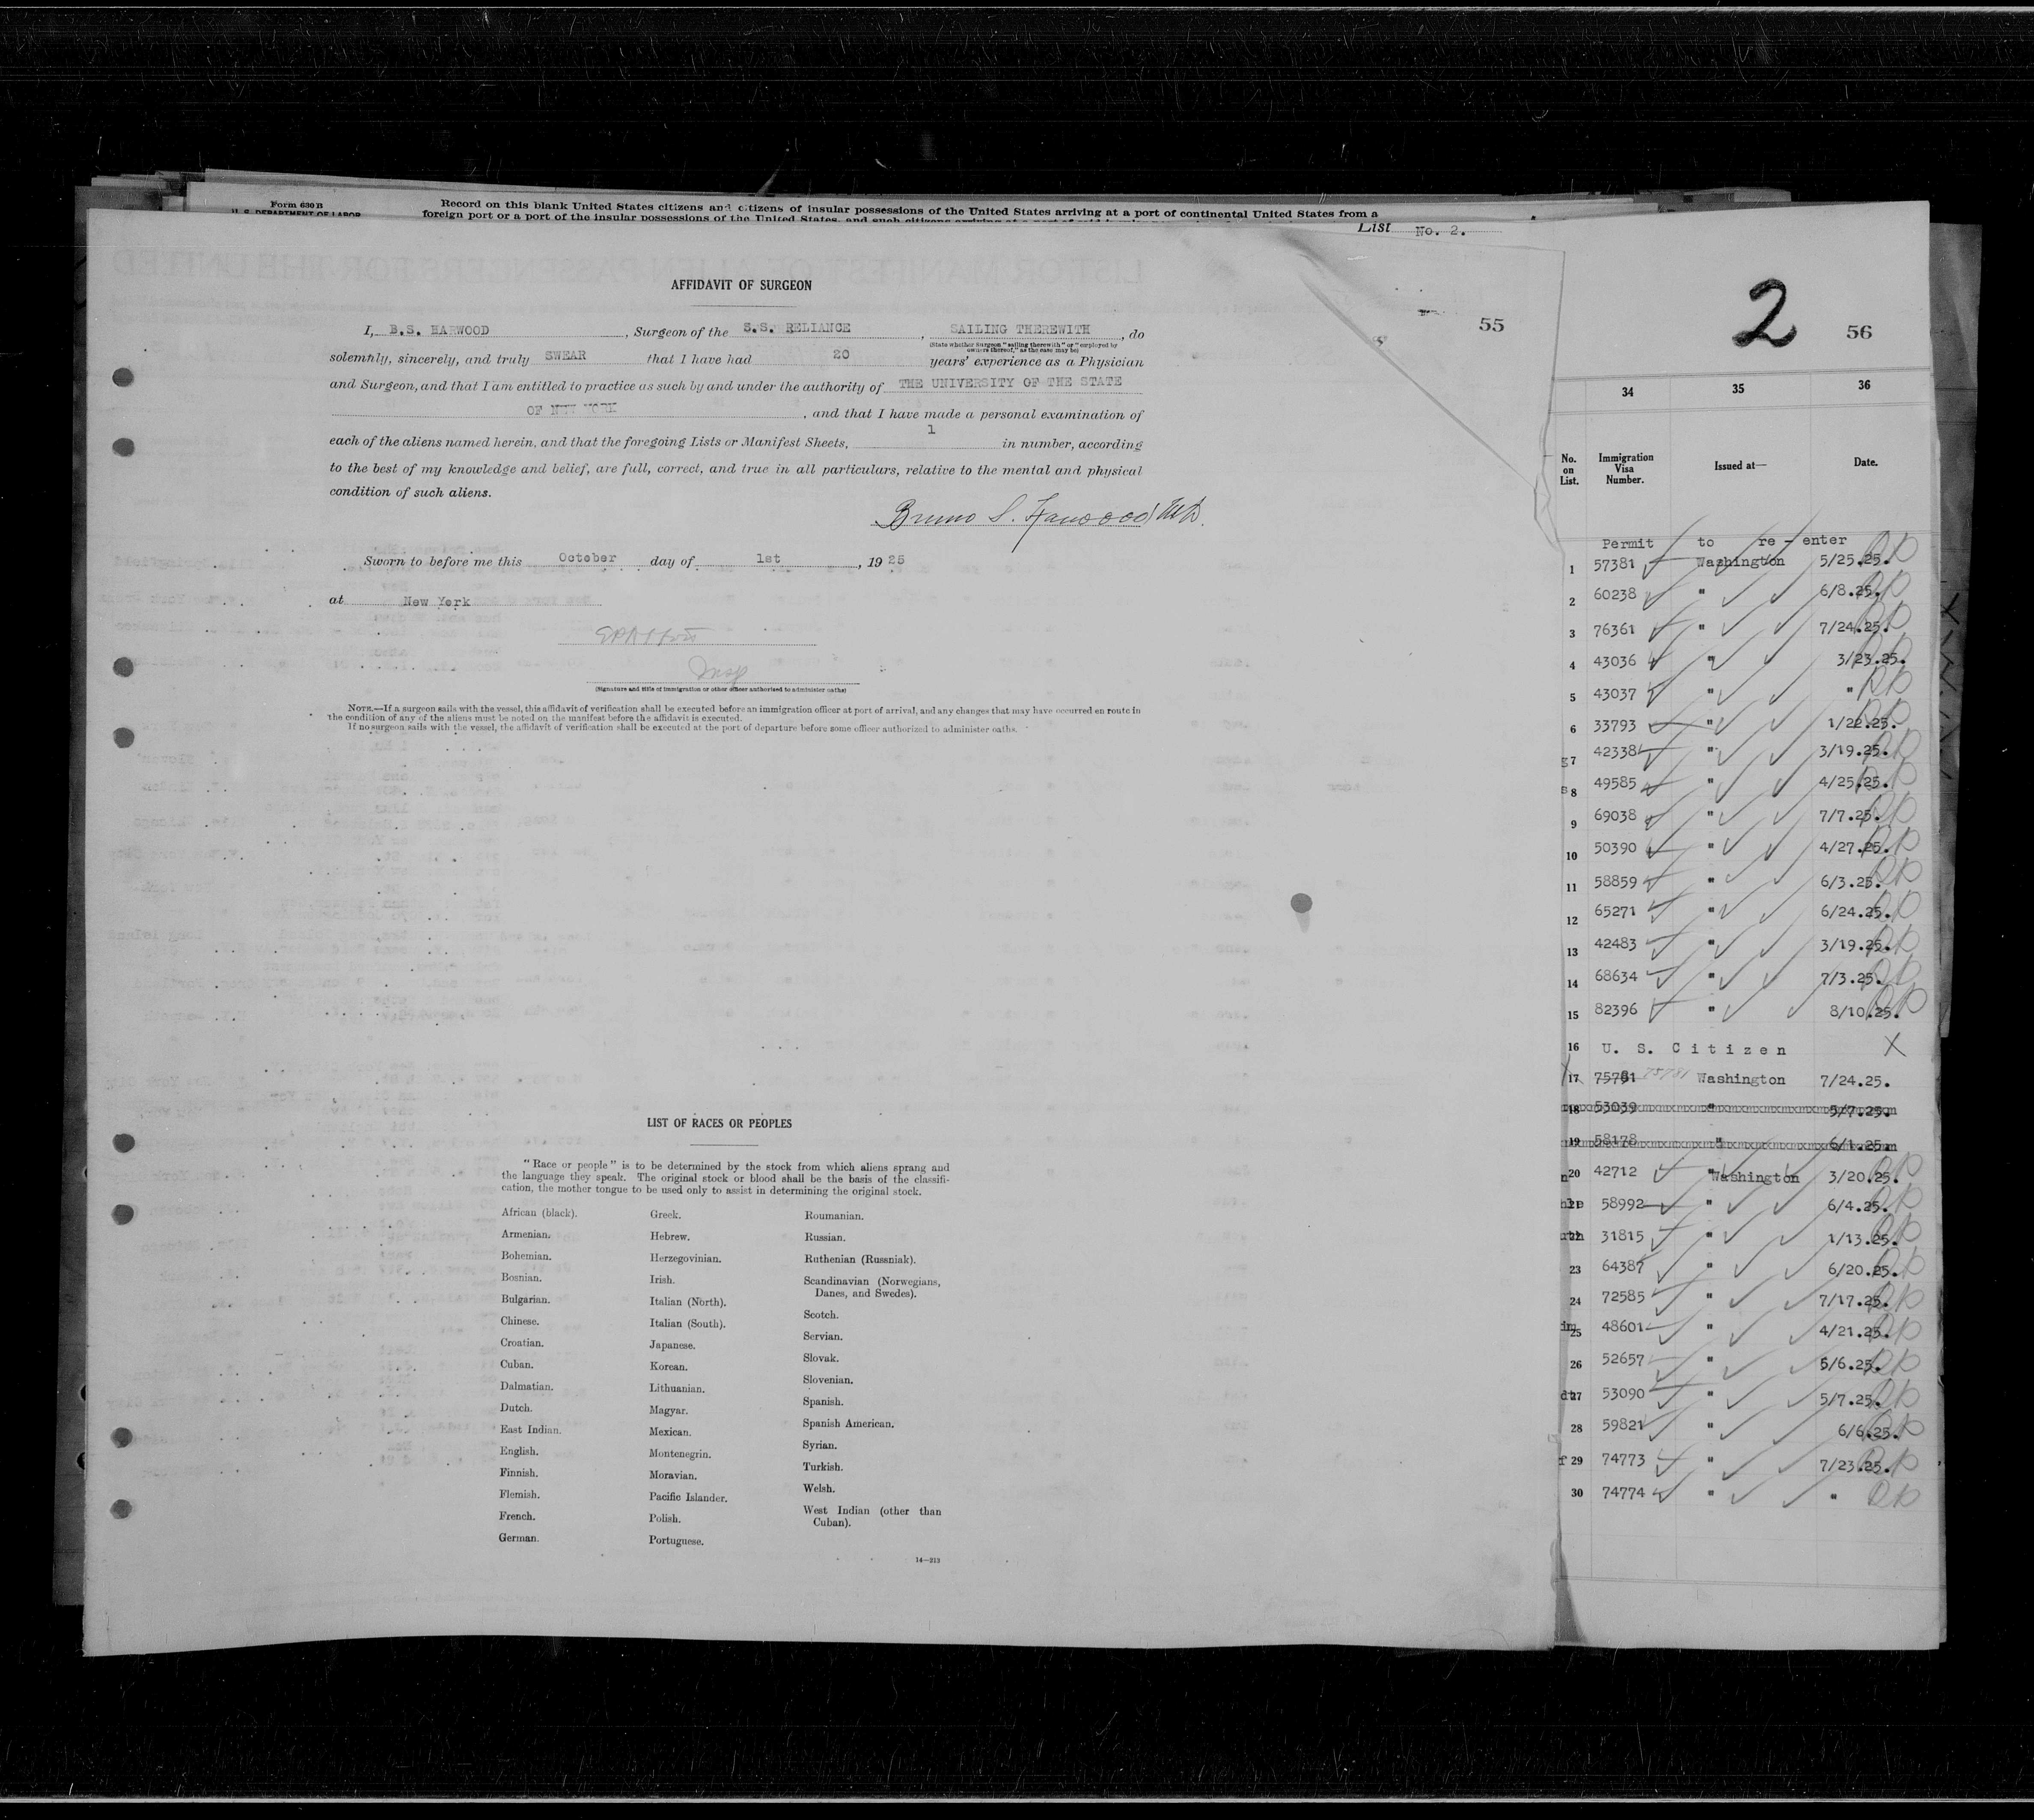 Form 630 B
U. S. DEPARTMENT OF LABOR
Record on this blank United States citizens and citizens of insular possessions of the United States arriving at a port of continental United States from a
foreign port or a port of the insular possessions of the United States, and such citizens arriving at a port of said insular possessions
List No. 2.
55
AFFIDAVIT OF SURGEON
I, B.S. HARWOOD, Surgeon of the S.S. RELIANCE, SAILING THEREWITH, do
(State whether Surgeon "sailing therewith" or "employed by
owners thereof," as the case may be)
solemnly, sincerely, and truly SWEAR that I have had 20 years' experience as a Physician
and Surgeon, and that I am entitled to practice as such by and under the authority of THE UNIVERSITY OF THE STATE
OF NEW YORK, and that I have made a personal examination of
each of the aliens named herein, and that the foregoing Lists or Manifest Sheets, 1 in number, according
to the best of my knowledge and belief, are full, correct, and true in all particulars, relative to the mental and physical
condition of such aliens.
Bruno S. Harwood M.D.
Sworn to before me this October day of 1st, 1925
at New York
Insp
(Signature and title of immigration or other officer authorized to administer oaths)
NOTE.—If a surgeon sails with the vessel, this affidavit of verification shall be executed before an immigration officer at port of arrival, and any changes that may have occurred en route in
the condition of any of the aliens must be noted on the manifest before the affidavit is executed.
If no surgeon sails with the vessel, the affidavit of verification shall be executed at the port of departure before some officer authorized to administer oaths.
LIST OF RACES OR PEOPLES
"Race or people" is to be determined by the stock from which aliens sprang and
the language they speak. The original stock or blood shall be the basis of the classifi-
cation, the mother tongue to be used only to assist in determining the original stock.
African (black).
Armenian.
Bohemian.
Bosnian.
Bulgarian.
Chinese.
Croatian.
Cuban.
Dalmatian.
Dutch.
East Indian.
English.
Finnish.
Flemish.
French.
German.
Greek.
Hebrew.
Herzegovinian.
Irish.
Italian (North).
Italian (South).
Japanese.
Korean.
Lithuanian.
Magyar.
Mexican.
Montenegrin.
Moravian.
Pacific Islander.
Polish.
Portuguese.
Roumanian.
Russian.
Ruthenian (Russniak).
Scandinavian (Norwegians,
Danes, and Swedes).
Scotch.
Servian.
Slovak.
Slovenian.
Spanish.
Spanish American.
Syrian.
Turkish.
Welsh.
West Indian (other than
Cuban).
14—213
2
56
34 35 36
No. on List. Immigration Visa Number. Issued at— Date.
Permit to re - enter
1 57381 Washington 5/25.25.
2 60238 " 6/8.25.
3 76361 " 7/24.25.
4 43036 " 3/23.25.
5 43037 " "
6 33793 " 1/22.25.
7 42338 " 3/19.25.
8 49585 " 4/25.25.
9 69038 " 7/7.25.
10 50390 " 4/27.25.
11 58859 " 6/3.25.
12 65271 " 6/24.25.
13 42483 " 3/19.25.
14 68634 " 7/3.25.
15 82396 " 8/10.25.
16 U. S. Citizen X
17 75781 Washington 7/24.25.
18 53039 " 5/7.25.
19 58178 " 6/1.25.
20 42712 " Washington 3/20.25.
21 58992 " 6/4.25.
22 31815 " 1/13.25.
23 64387 " 6/20.25.
24 72585 " 7/17.25.
25 48601 " 4/21.25.
26 52657 " 5/6.25.
27 53090 " 5/7.25.
28 59821 " 6/6.25.
29 74773 " 7/23.25.
30 74774 " "